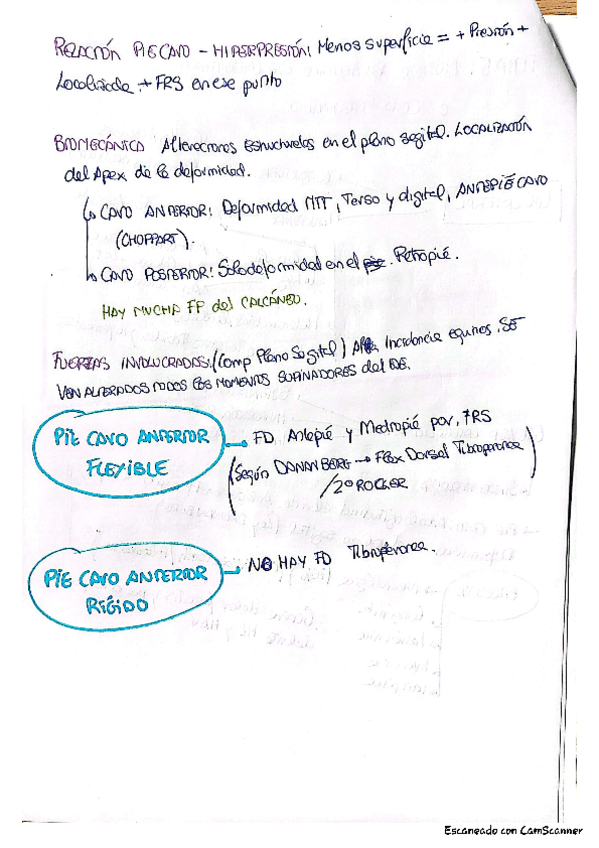 RELACIÓN PIE CAVO - HIPERPRESIÓN: Menos superficie = + Presión +
Localizada + FRS en ese punto
BIOMECÁNICA Alteraciones estructurales en el plano sagital. LOCALIZACIÓN
del Apex de la deformidad.
CAVO ANTERIOR: Deformidad MTT, Tarso y digital, ANTEPIÉ CAVO
(CHOPPART).
CAVO POSTERIOR: Solo deformidad en el pie. Retropié.
HAY MUCHA FP del CALCÁNEO.
FUERZAS INVOLUCRADAS: (Comp Plano Sagital) Incidencia equinos. SE
VEN ALTERADOS TODOS LOS MOMENTOS SUPINADORES del
PIE CAVO ANTERIOR
FLEXIBLE
FD Antepié y Mediopié por FRS
(Según DANANBERG → Flex Dorsal Tibioperonea)
/2º ROCKER
PIE CAVO ANTERIOR
RÍGIDO
NO HAY FD Tibioperonea.
Escaneado con CamScanner